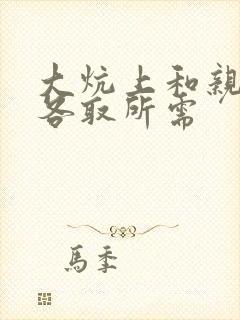 大炕上和親
各取所需
馬季